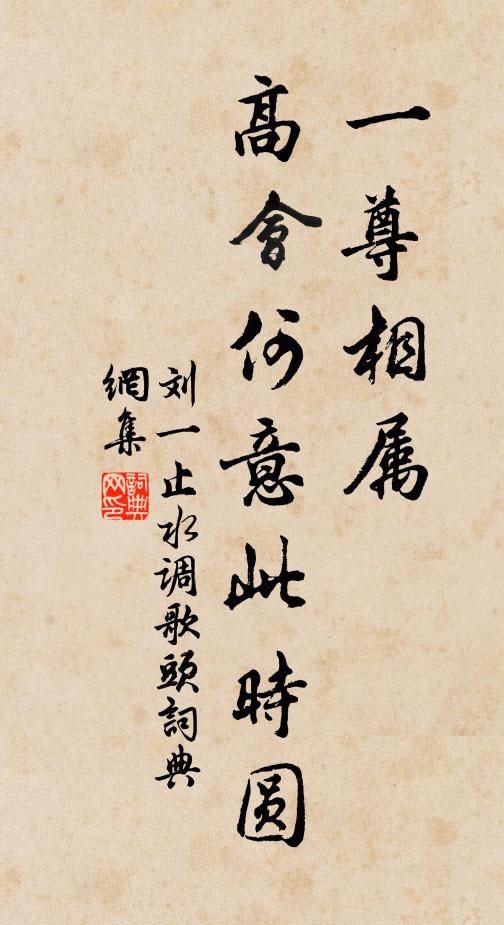 一尊相属
高會何意此時圆
刘一止水调歌頭詞典
網集
詞典網印